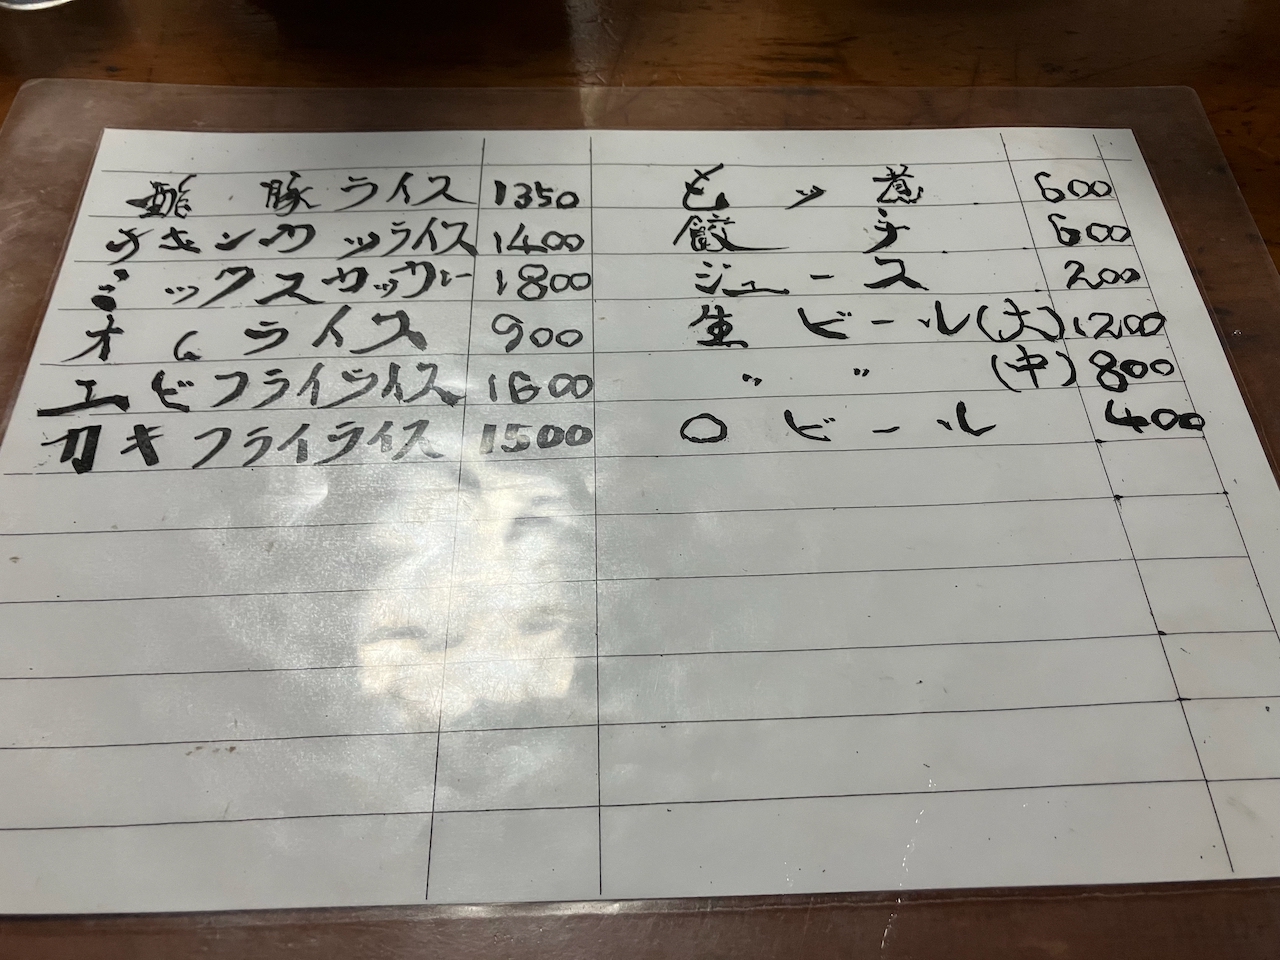 酢豚ライス 1350
チキンカツライス 1400
ミックスサワー 1800
オムライス 900
エビフライライス 1600
カキフライライス 1500
もツ煮 600
餃子 600
ジュース 200
生ビール(大) 1200
〃 〃 (中) 800
〇ビール 400